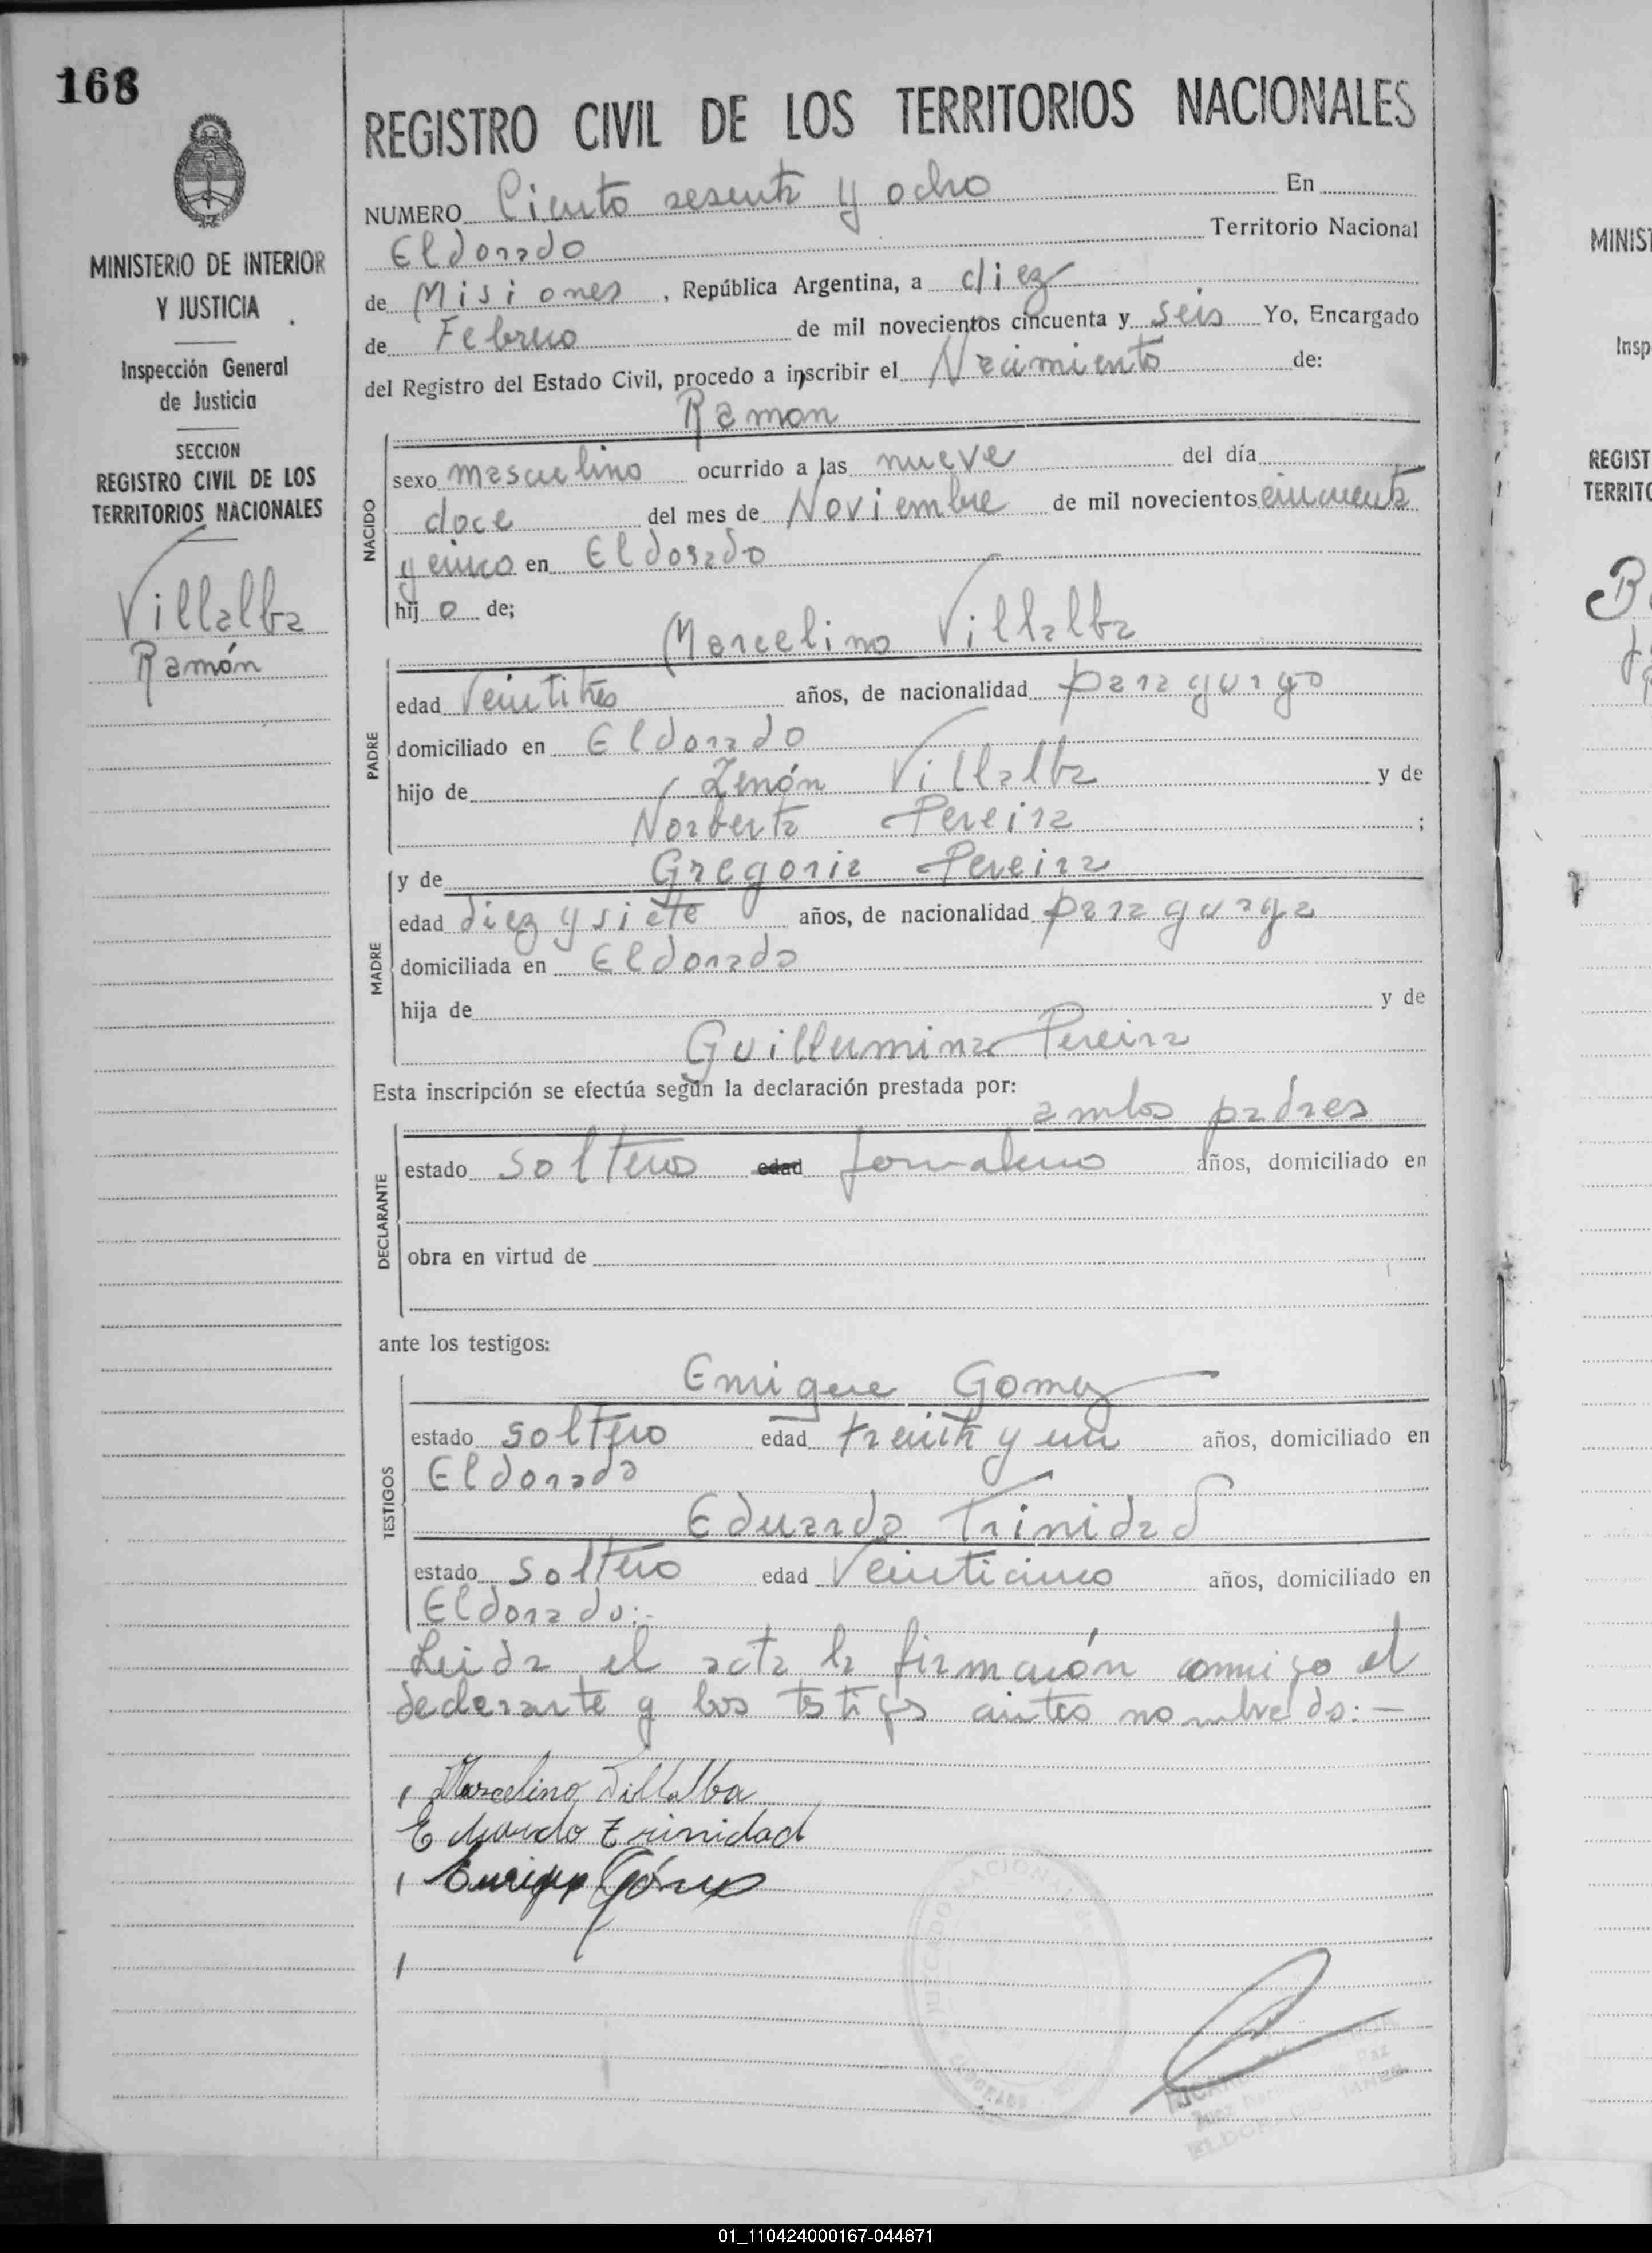 168
REGISTRO CIVIL DE LOS TERRITORIOS NACIONALES
MINISTERIO DE INTERIOR
Y JUSTICIA
Inspección General
de Justicia
SECCION
REGISTRO CIVIL DE LOS
TERRITORIOS NACIONALES
Villalba
Ramón
NUMERO Ciento sesenta y ocho En
Eldorado Territorio Nacional
de Misiones, República Argentina, a diez
de Febrero de mil novecientos cincuenta y seis Yo, Encargado
del Registro del Estado Civil, procedo a inscribir el Nacimiento de:
Ramon
NACIDO
sexo masculino ocurrido a las nueve del día
doce del mes de Noviembre de mil novecientos cincuenta
y cinco en Eldorado
hij o de;
Marcelino Villalba
PADRE
edad Veintitres años, de nacionalidad paraguayo
domiciliado en Eldorado
hijo de Zenón Villalba y de
Norberta Pereira ;
y de Gregoria Pereira
MADRE
edad diez y siete años, de nacionalidad paraguaya
domiciliada en Eldorado
hija de y de
Guillermina Pereira
Esta inscripción se efectúa según la declaración prestada por:
ambos padres
DECLARANTE
estado solteros edad jornalero años, domiciliado en
obra en virtud de
ante los testigos:
Enrique Gomez
TESTIGOS
estado soltero edad treinta y un años, domiciliado en
Eldorado
Eduardo Trinidad
estado soltero edad Veinticinco años, domiciliado en
Eldorado:-
Leida el acta la firmaron conmigo el
declarante y los testigos antes nombrados:-
Marcelino Villalba
Eduardo Trinidad
Enrique Gómez
MINIST
Insp
REGIST
TERRITO
01_110424000167-044871